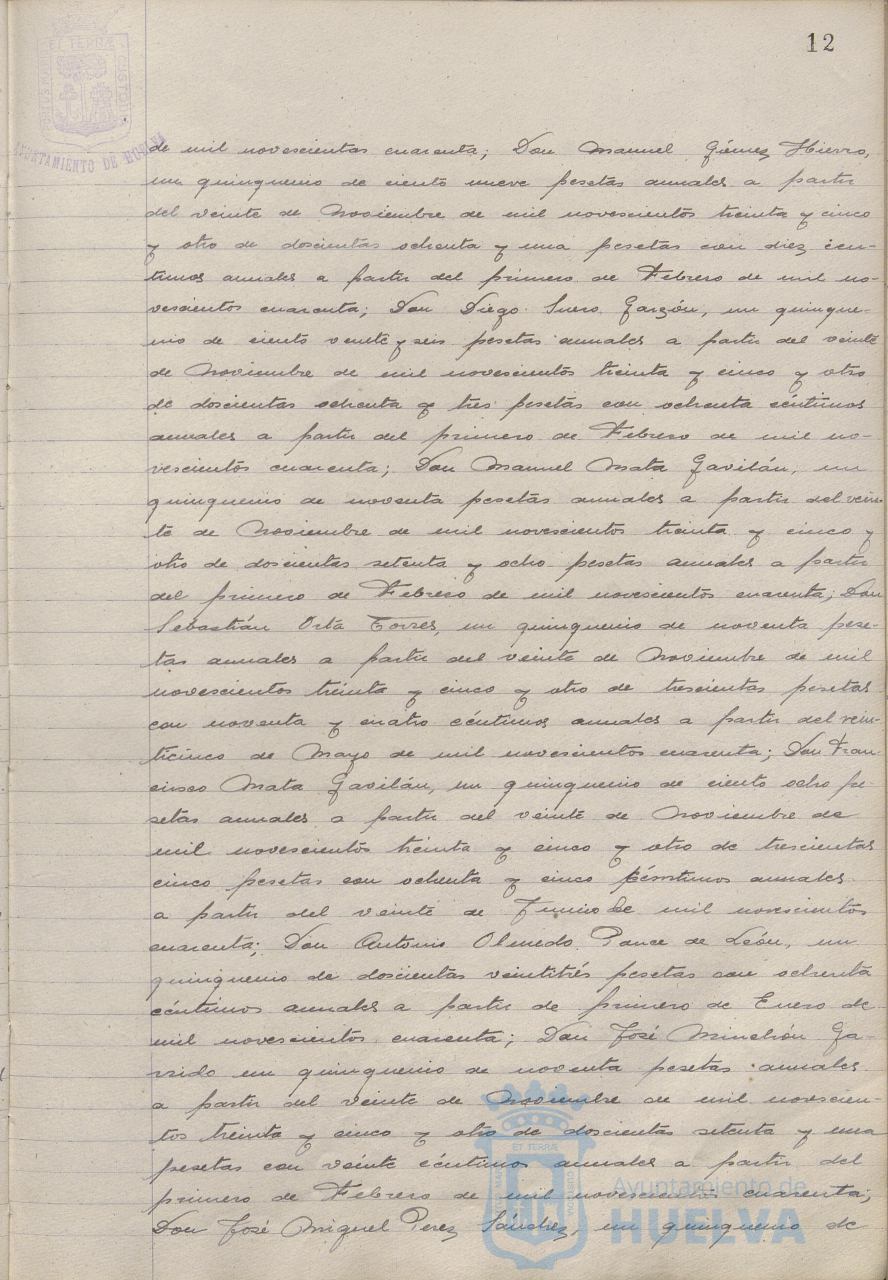 12
PORTUS MARIS ET TERRÆ CUSTODIA
AYUNTAMIENTO DE HUELVA
de mil novescientas cuarenta; Don Manuel Gómez Hierro,
un quinquenio de ciento nueve pesetas anuales a partir
del veinte de Noviembre de mil novescientos treinta y cinco
y otro de doscientas ochenta y una pesetas con diez cén-
timos anuales a partir del primero de Febrero de mil no-
vescientos cuarenta; Don Diego Suero Garzón, un quinque-
nio de ciento veinte y seis pesetas anuales a partir del veinte
de Noviembre de mil novescientos treinta y cinco y otro
de doscientas ochenta y tres pesetas con ochenta céntimos
anuales a partir del primero de Febrero de mil no-
vescientos cuarenta; Don Manuel Mata Gavilán, un
quinquenio de noventa pesetas anuales a partir del vein-
te de Noviembre de mil novescientos treinta y cinco y
otro de doscientas setenta y ocho pesetas anuales a partir
del primero de Febrero de mil novescientos cuarenta; Don
Sebastián Orta Torres, un quinquenio de noventa pese-
tas anuales a partir del veinte de Noviembre de mil
novescientos treinta y cinco y otro de trescientas pesetas
con noventa y cuatro céntimos anuales a partir del vein-
ticinco de Mayo de mil novescientos cuarenta; Don Fran-
cisco Mata Gavilán, un quinquenio de ciento ocho pe-
setas anuales a partir del veinte de Noviembre de
mil novescientos treinta y cinco y otro de trescientas
cinco pesetas con ochenta y cinco céntimos anuales
a partir del veinte de Junio de mil novescientos
cuarenta; Don Antonio Olmedo Ponce de León, un
quinquenio de doscientas veintitrés pesetas con ochenta
céntimos anuales a partir de primero de Enero de
mil novescientos cuarenta; Don José Minchón Ga-
rrido un quinquenio de noventa pesetas anuales
a partir del veinte de Noviembre de mil novescien-
tos treinta y cinco y otro de doscientas setenta y una
pesetas con veinte céntimos anuales a partir del
primero de Febrero de mil novescientos cuarenta;
Don José Miguel Perez Sánchez, un quinquenio de
Ayuntamiento de
HUELVA